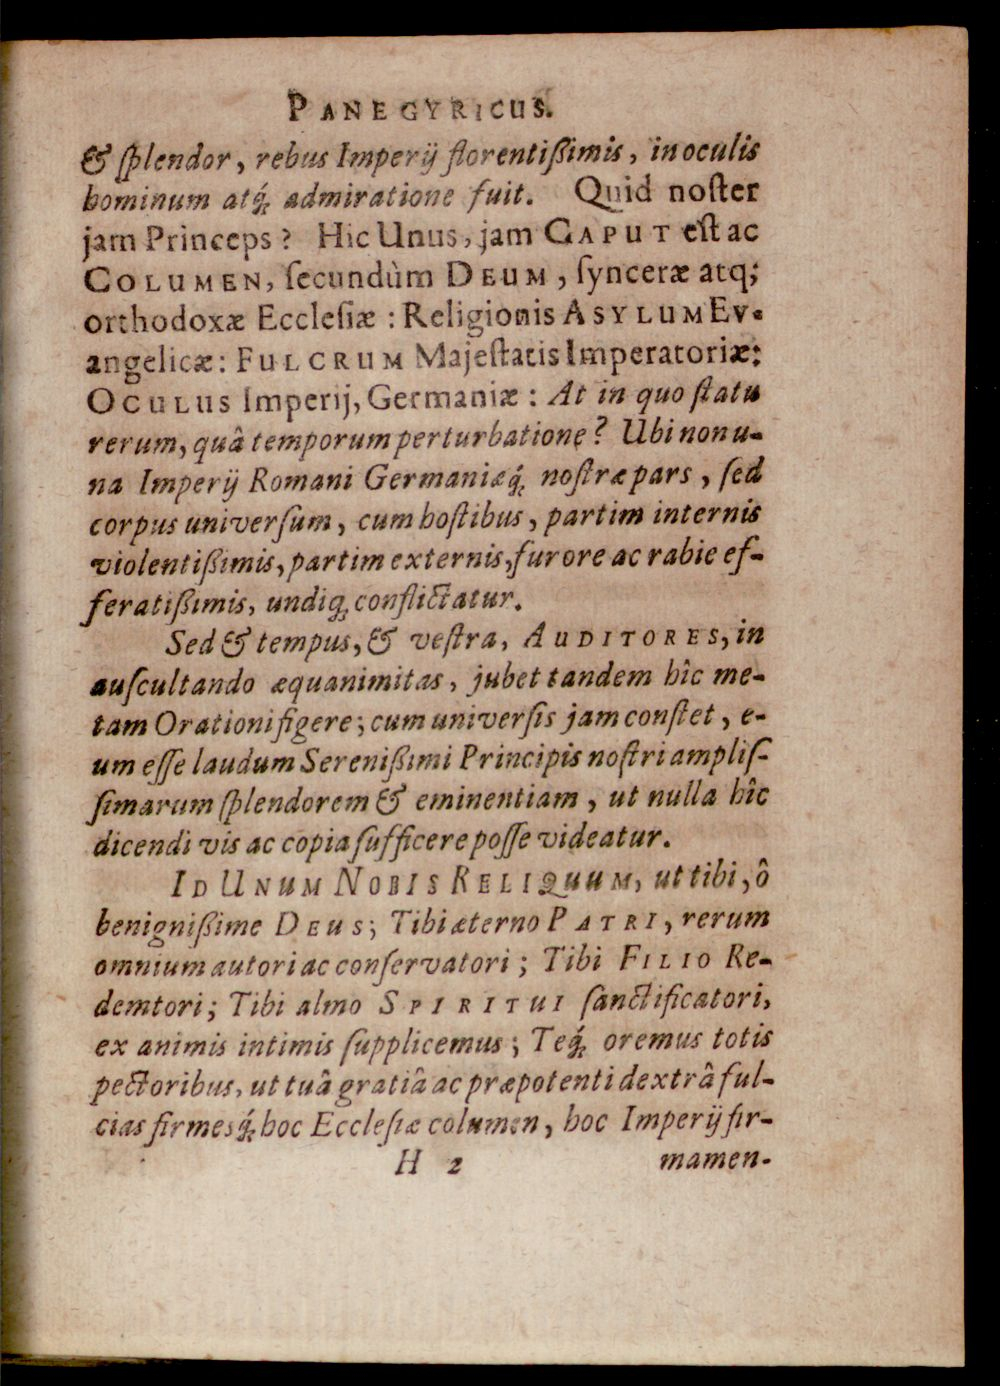 PANEGYRICUS.
& ſplendor, rebus Imperij florentißimis, in oculis
hominum atq́; admiratione fuit. Quid noſter
jam Princeps? Hic Unus, jam CAPUT eſt ac
COLUMEN, ſecundùm DEUM, ſynceræ atq;
orthodoxæ Eccleſiæ: Religionis ASYLUM Ev-
angelicæ: FULCRUM Majeſtatis Imperatoriæ:
OCULUS Imperij, Germaniæ: At in quo ſtatu
rerum, quâ temporum perturbatione? Ubi non u-
na Imperij Romani Germaniæq́; noſtræ pars, ſed
corpus univerſum, cum hoſtibus, partim internis
violentißimis, partim externis, furore ac rabie ef-
feratißimis, undiq; conflictatur.
Sed & tempus, & veſtra, AUDITORES, in
auſcultando æquanimitas, jubet tandem hîc me-
tam Orationi figere; cum univerſis jam conſtet, e-
um eſſe laudum Serenißimi Principis noſtri ampliſ-
ſimarum ſplendorem & eminentiam, ut nulla hîc
dicendi vis ac copia ſufficere poſſe videatur.
ID UNUM NOBIS RELIQUUM, ut tibi, ô
benignißime DEUS; Tibi æterno PATRI, rerum
omnium autori ac conſervatori; Tibi FILIO Re-
demtori; Tibi almo SPIRITUI ſanctificatori,
ex animis intimis ſupplicemus; Teq́; oremus totis
pectoribus, ut tuâ gratiâ ac præpotenti dextrâ ful-
cias firmesq́; hoc Eccleſiæ columen, hoc Imperij fir-
H 2 mamen-